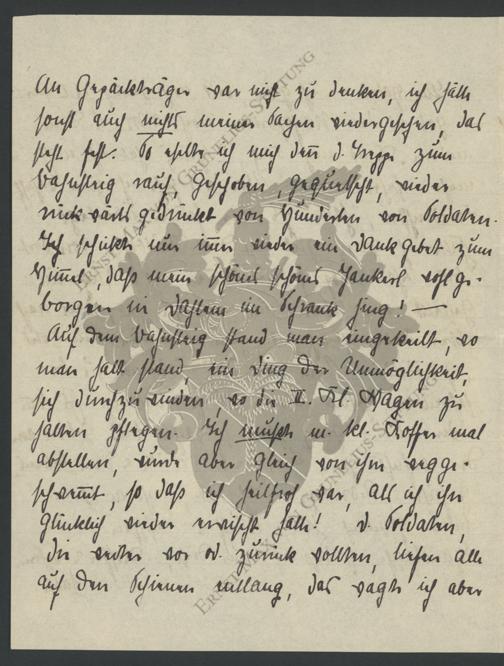 An Gepäckträger war nicht zu denken, ich hätte
sonst auch nichts meiner Sachen wiedergesehen, das
steht fest. So eselte ich mich denn d. Treppe zum
Bahnsteig rauf, geschoben, gequetscht, wieder
rückwärts gedrückt von Hunderten von Soldaten.
Ich schickte nur immer wieder ein Dankgebet zum
Himmel, daß mein schönes schönes Jankerl wohlge-
borgen in Dahlem im Schrank hing! —
Auf dem Bahnsteig stand man eingekeilt, wo
man halt stand, ein Ding der Unmöglichkeit,
sich durchzuwinden, wo die II. Kl. Wagen zu
halten pflegen. Ich mußte m. kl. Koffer mal
abstellen, wurde aber gleich von ihm wegge-
schwemmt, so daß ich heilfroh war, als ich ihn
glücklich wieder erwischt hatte! d. Soldaten,
die weiter vor od. zurück wollten, liefen alle
auf den Schienen entlang, das wagte ich aber